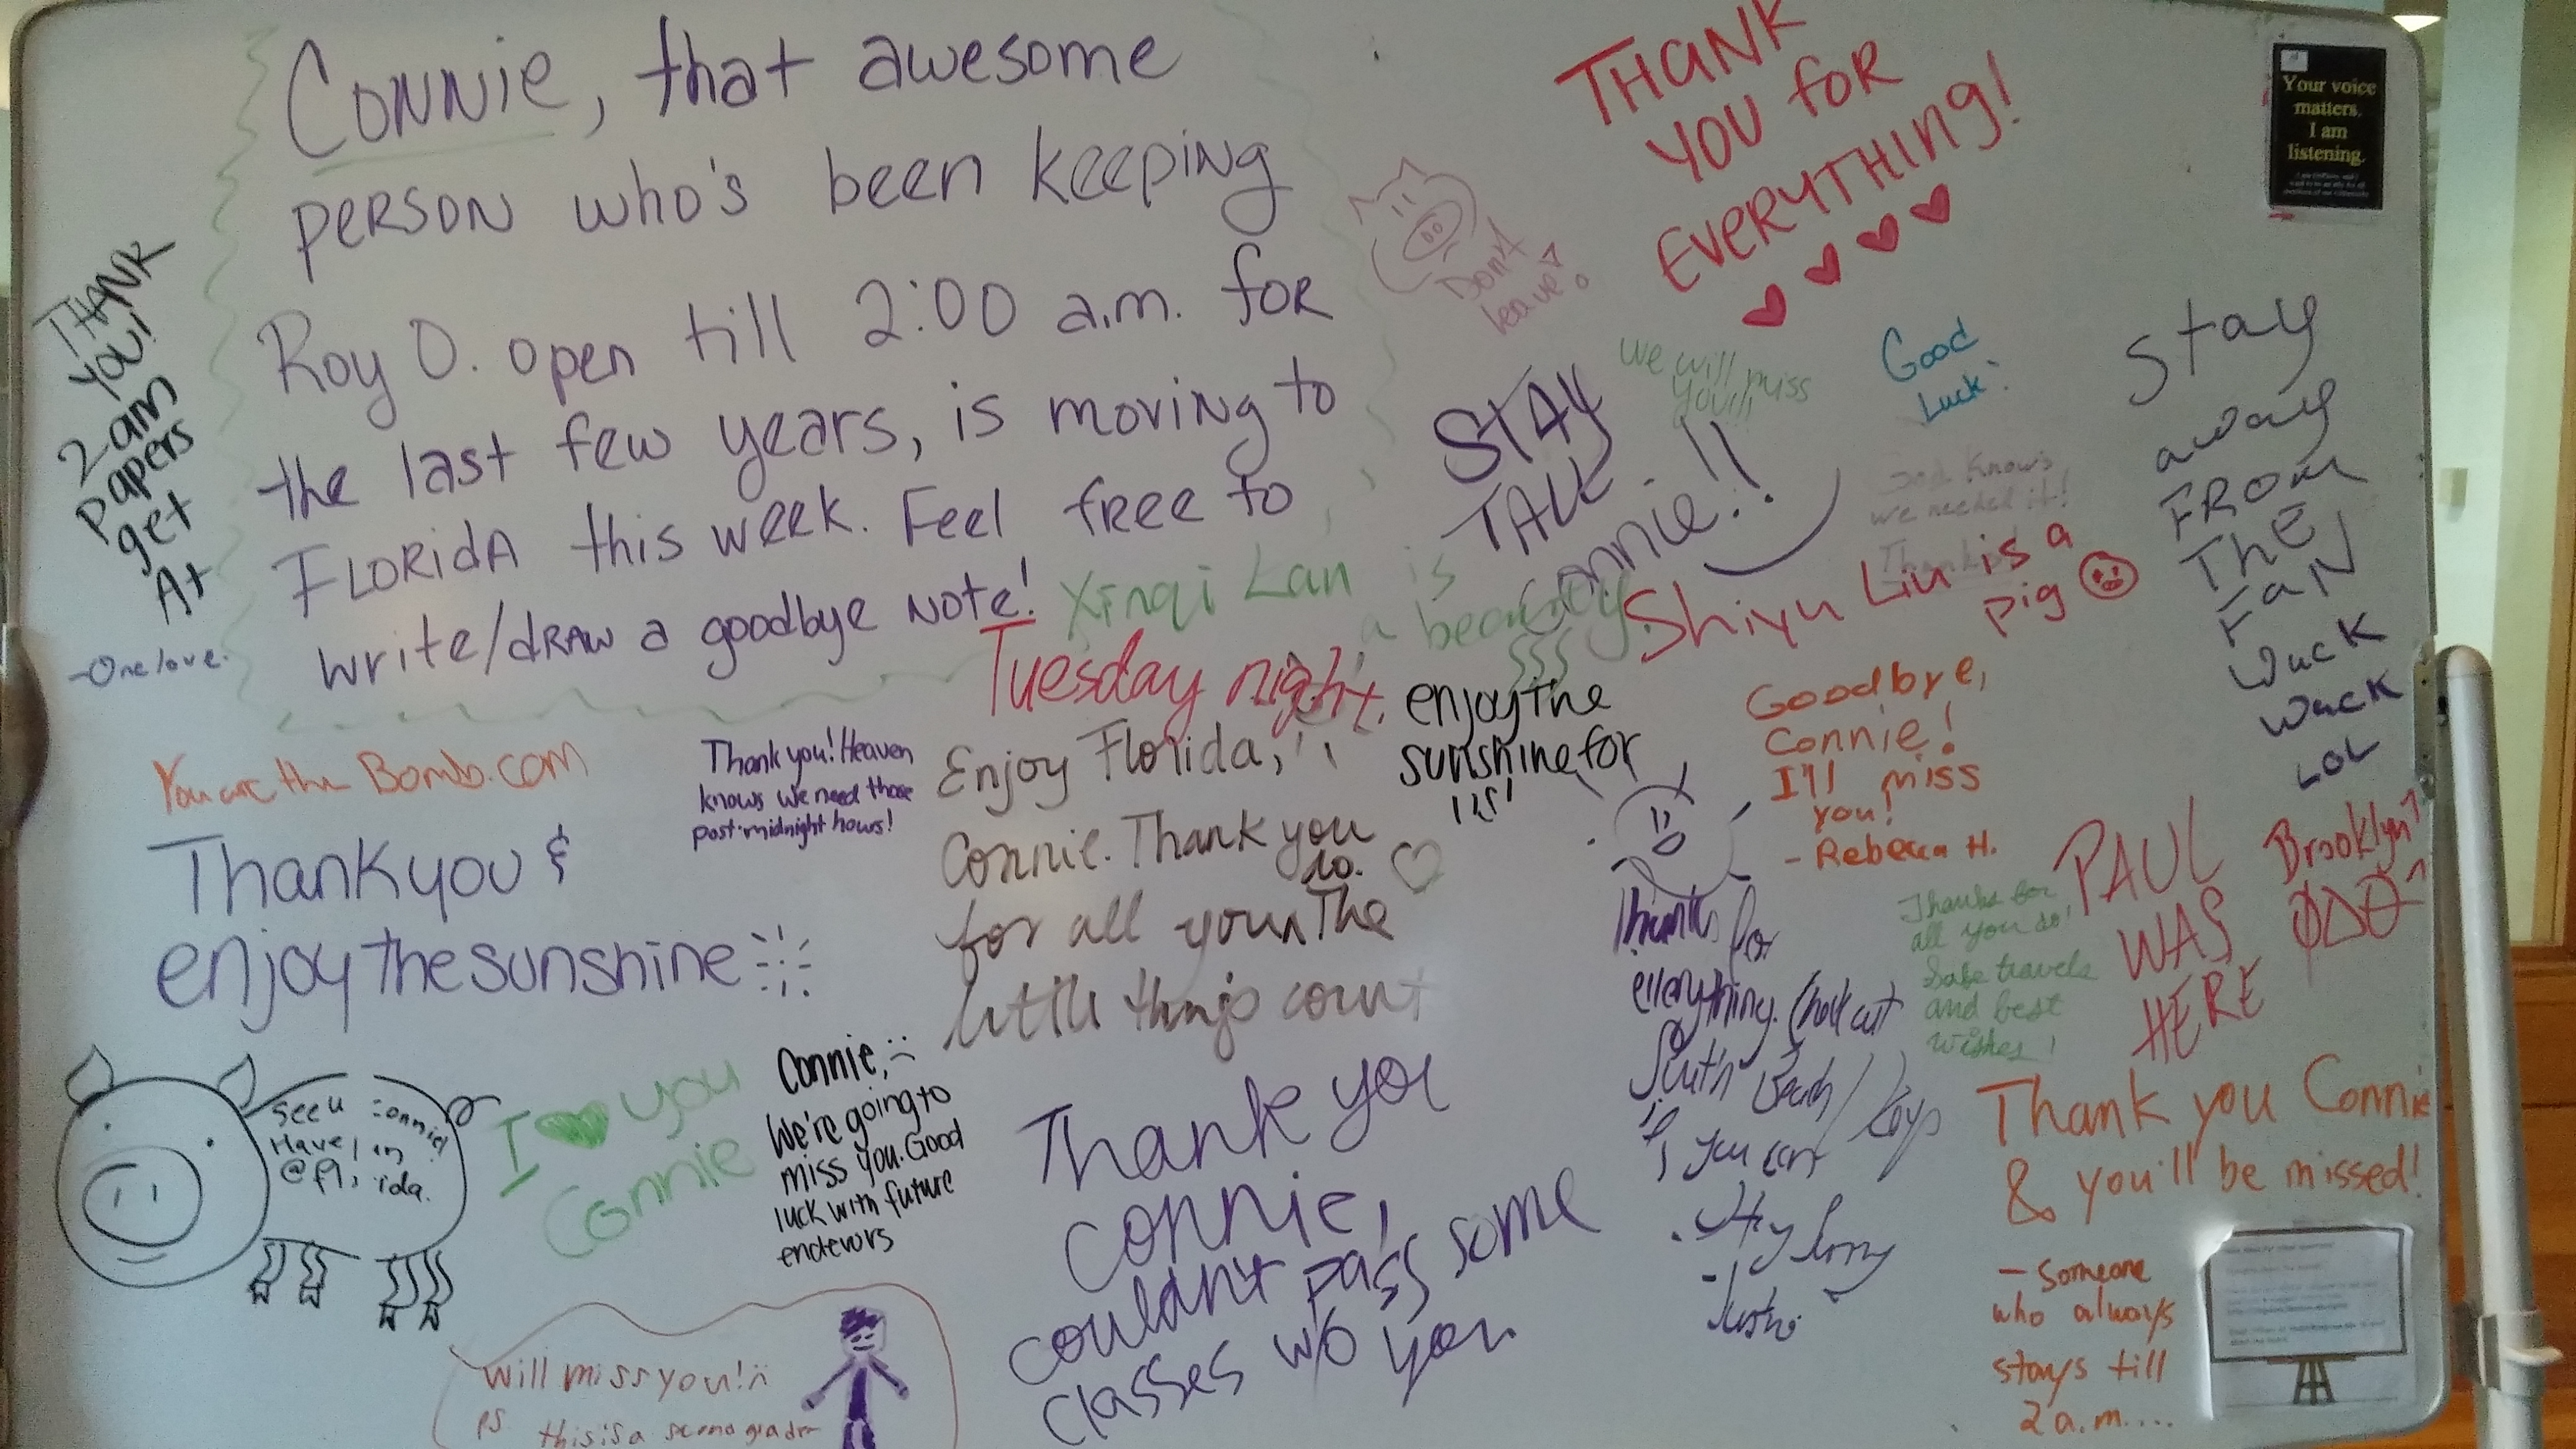 Connie, that awesome
person who's been keeping
Roy O. open till 2:00 a.m. for
the last few years, is moving to
Florida this week. Feel free to
write/draw a goodbye note!
THANK
YOU!
2 am
papers
get
At
-One love.
THANK
YOU FOR
EVERYTHING!
Don't
leave!
Your voice
matters.
I am
listening.
we will miss
you!!
Good
Luck!
STAY
TALL
Connie!!
God knows
we needed it!
Thanks
Stay
away
FROM
THE
FAN
Wack
Wack
LOL
Xinqi Lan is
a beauty
Shiyu Liu is a
pig
Tuesday night.
You are the Bomb.com
Thank you! Heaven
knows we need those
post-midnight hours!
Enjoy Florida,
Connie. Thank you
so.
for all your The
little things count
enjoy the
sunshine for
us!
Goodbye,
Connie!
I'll miss
you!
- Rebecca H.
Thank you &
enjoy the sunshine
Thanks for
everything. Check out
South Beach/Keys
if you can
Thanks for
all you do!
Safe travels
and best
wishes!
PAUL
WAS
HERE
Brooklyn
ΦΔΘ
see u connie!
Have
@
I you
Connie
Connie, :(
We're going to
miss you. Good
luck with future
endevors
Thank you
Connie,
couldn't pass some
classes w/o you
Thank you Connie
& you'll be missed!
- Someone
who always
stays till
2 a.m....
will miss you! :(
PS this is a